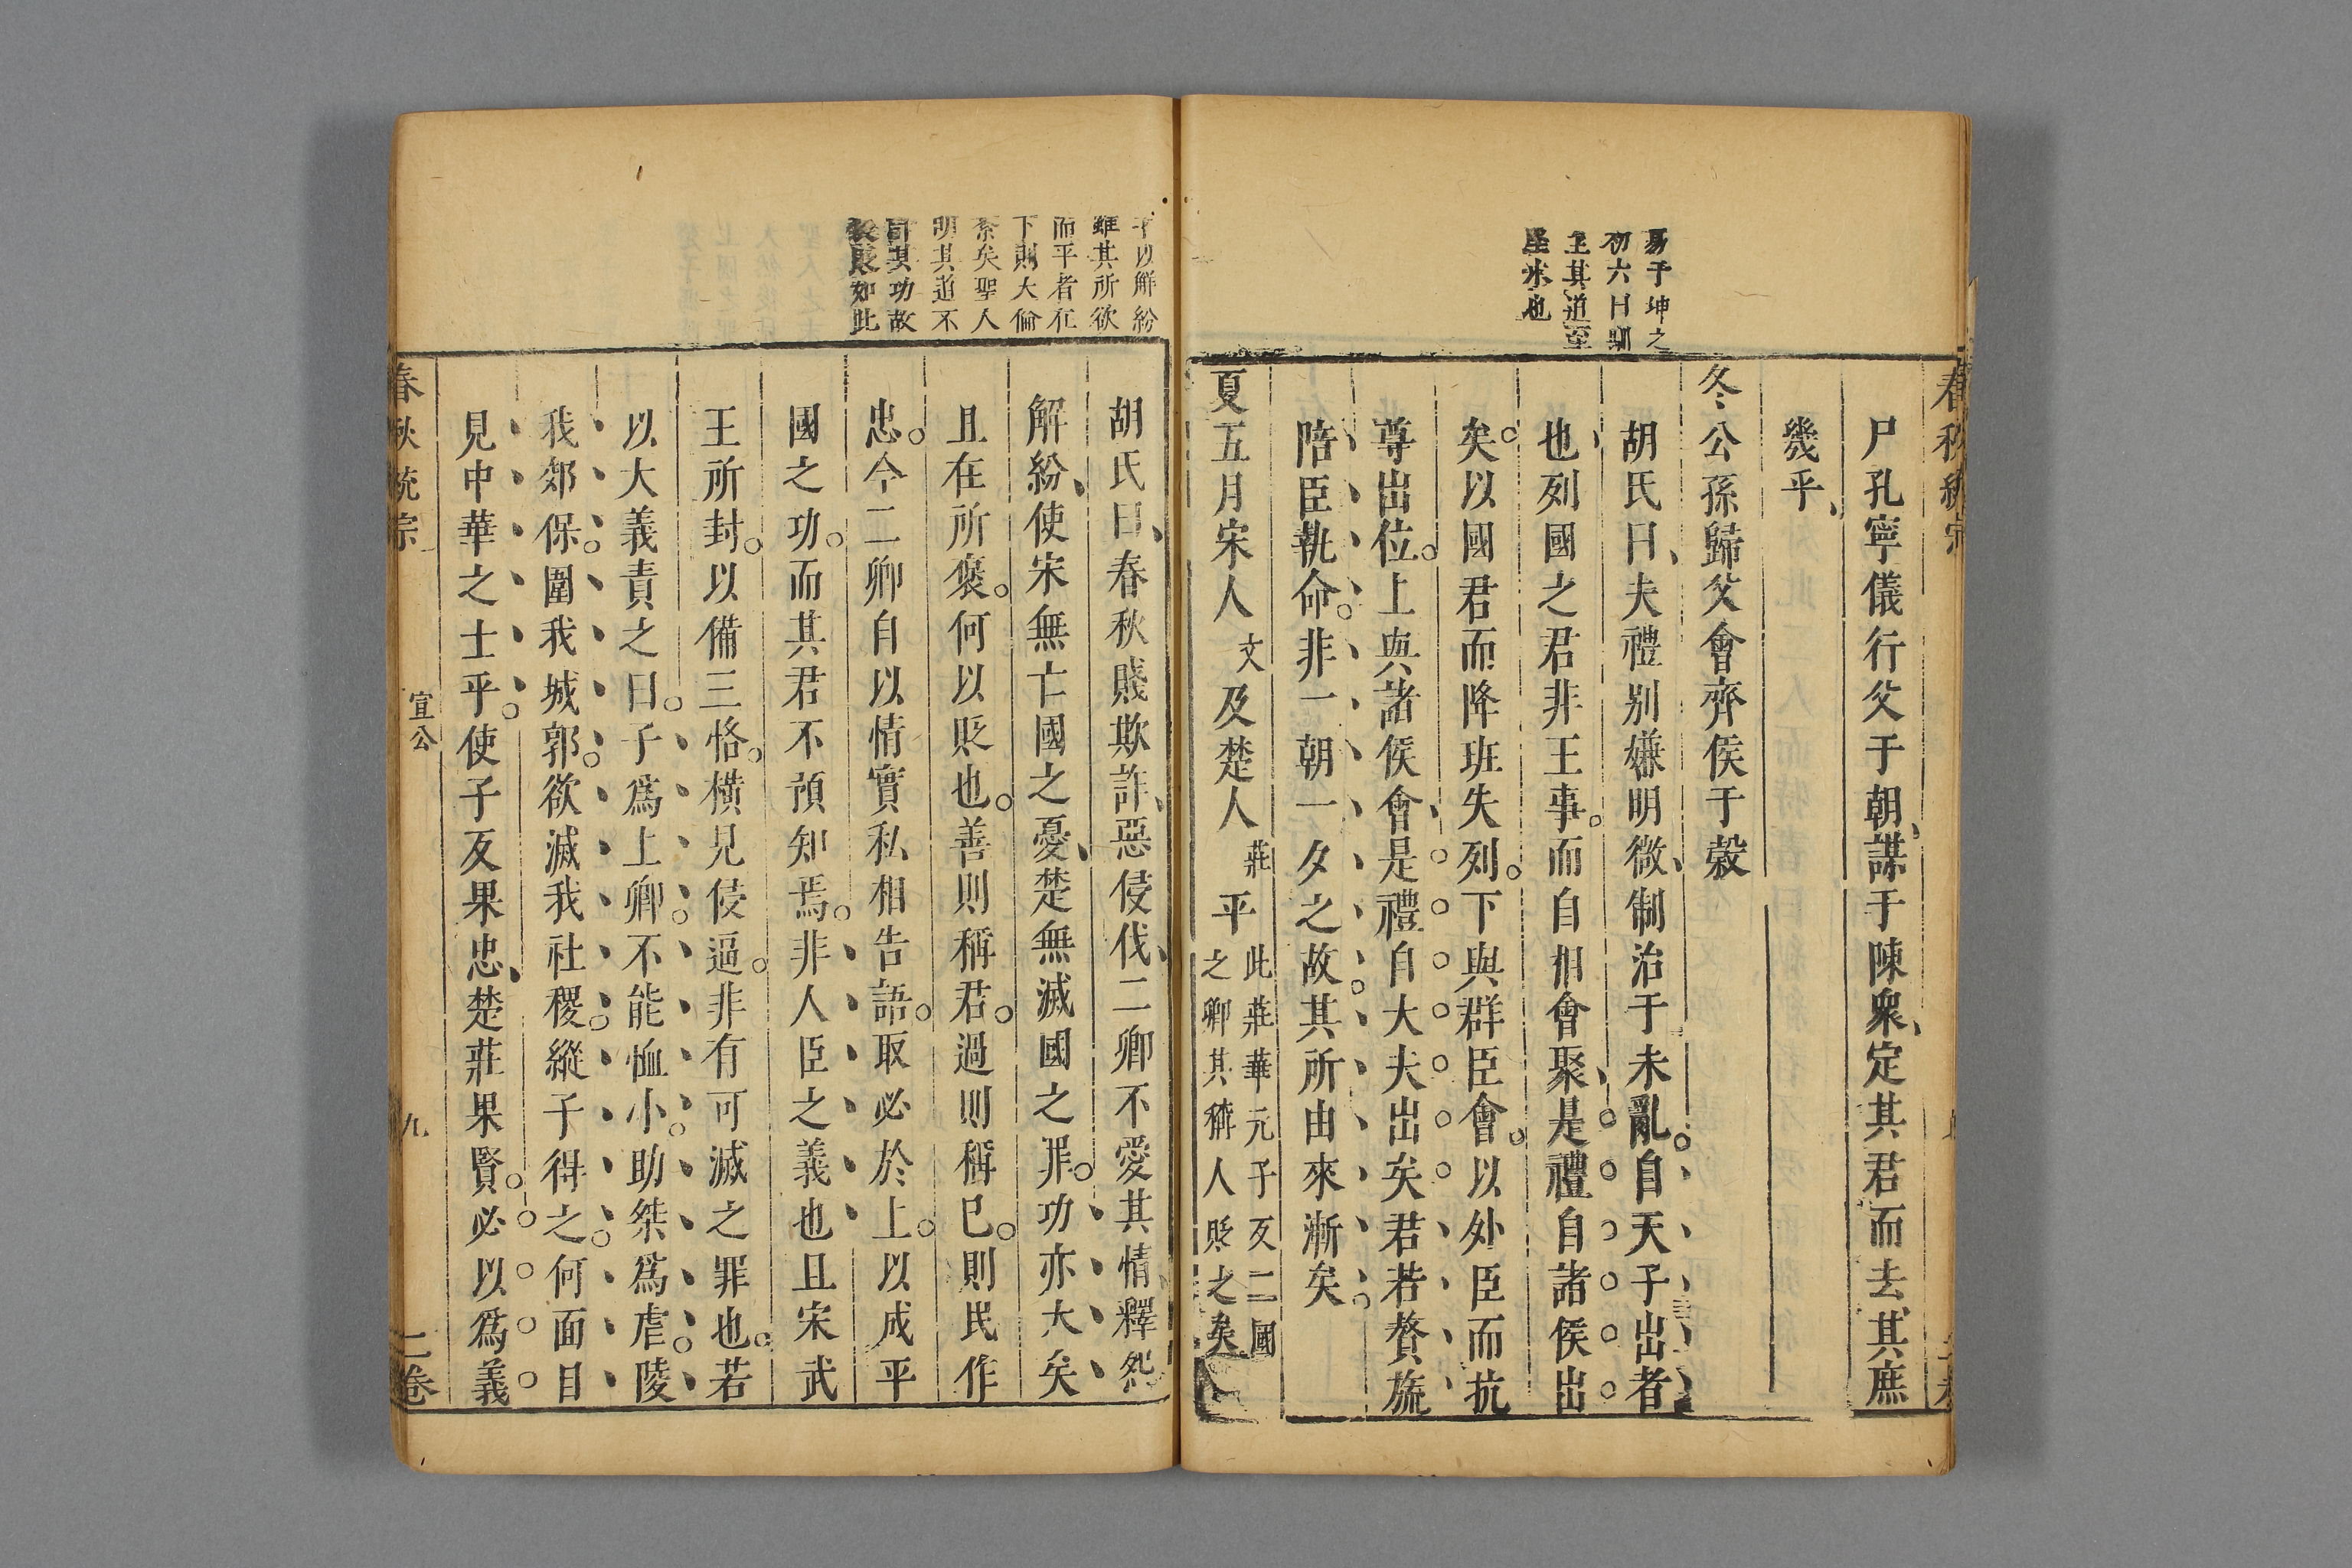 易于坤之
初六曰馴
至其道至
堅冰也
尸孔寧儀行父于朝謀于陳衆定其君而去其庶
幾乎
冬公孫歸父會齊侯于穀
胡氏曰夫禮别嫌明微制治于未亂自天子出者
也列國之君非王事而自相會聚是禮自諸侯出
矣以國君而降班失列下與群臣會以外臣而抗
尊出位上與諸侯會是禮自大夫出矣君若贅旒
陪臣執命非一朝一夕之故其所由來漸矣
夏五月宋人文及楚人莊平此莊華元子反二國
之卿其稱人貶之矣
子以解紛
雖其所欲
而平者在
下則大倫
紊矣聖人
明其道不
計其功故
褒貶如此
胡氏曰春秋賤欺詐惡侵伐二卿不愛其情釋怨
解紛使宋無亡國之憂楚無滅國之罪功亦大矣
且在所褒何以貶也善則稱君過則稱已則民作
忠今二卿自以情實私相告語取必於上以成平
國之功而其君不預知焉非人臣之義也且宋武
王所封以備三恪橫見侵逼非有可滅之罪也若
以大義責之曰子爲上卿不能恤小助桀爲虐陵
我郊保圍我城郭欲滅我社稷縱子得之何面目
見中華之士乎使子反果忠楚莊果賢必以爲義
春秋統宗
宣公
九
二卷